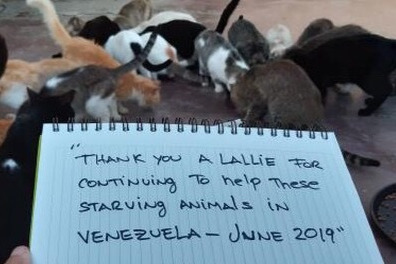 "THANK YOU A LALLiE FOR
CONTiNUiNG TO HELP THESE
STARVING ANiMALS iN
VENEZUELA - JUNE 2019"